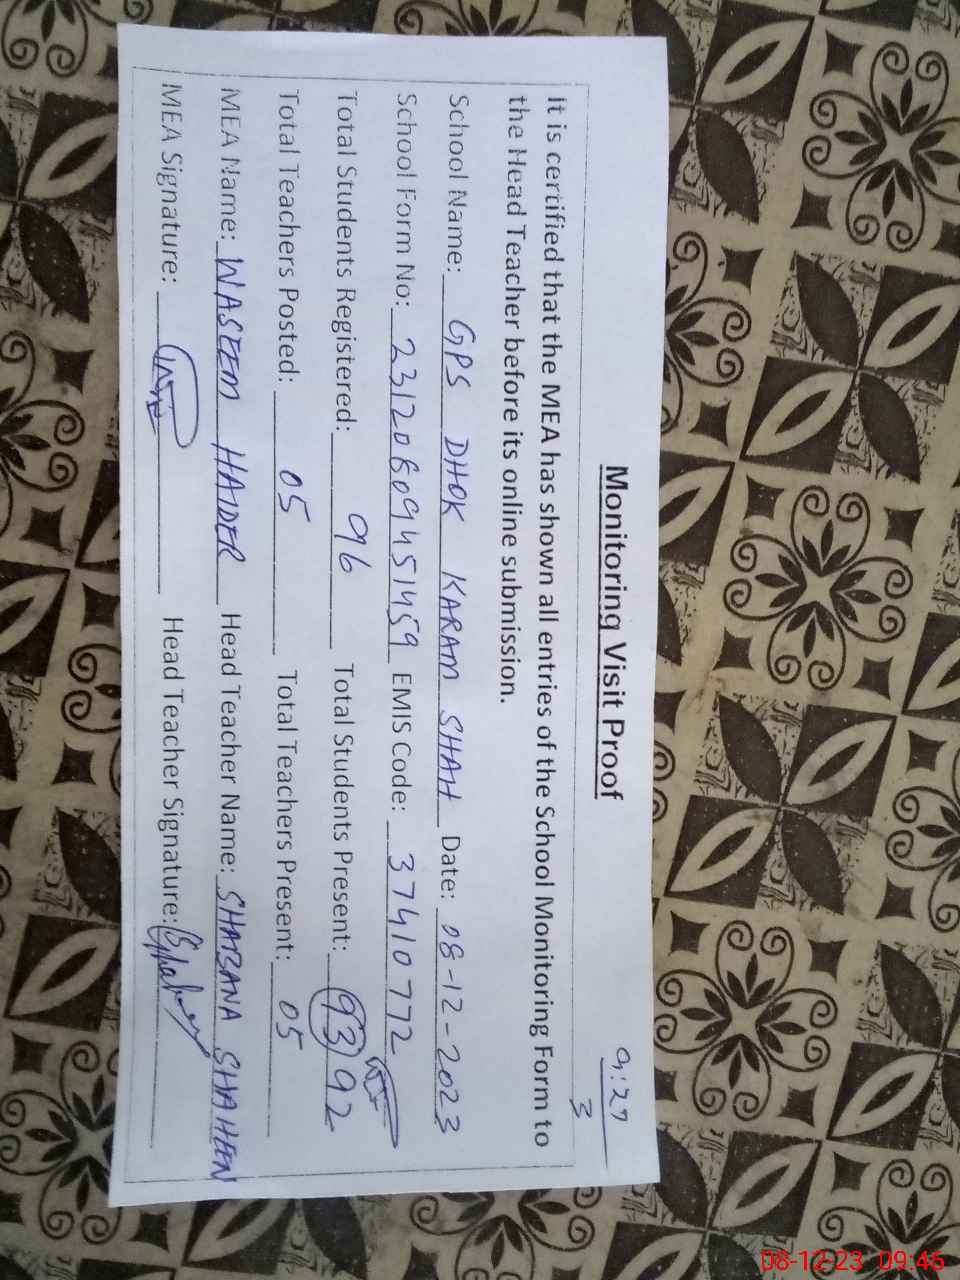 9:27
3
Monitoring Visit Proof
It is certified that the MEA has shown all entries of the School Monitoring Form to
the Head Teacher before its online submission.
School Name: GPS DHOK KARAM SHAH Date: 08-12-2023
School Form No: 231208094451459 EMIS Code: 37410772
Total Students Registered: 96 Total Students Present: 93 92
Total Teachers Posted: 05 Total Teachers Present: 05
MEA Name: WASEEM HAIDER Head Teacher Name: SHABANA SHAHEEN
MEA Signature: Head Teacher Signature:
08-12-23 09:46